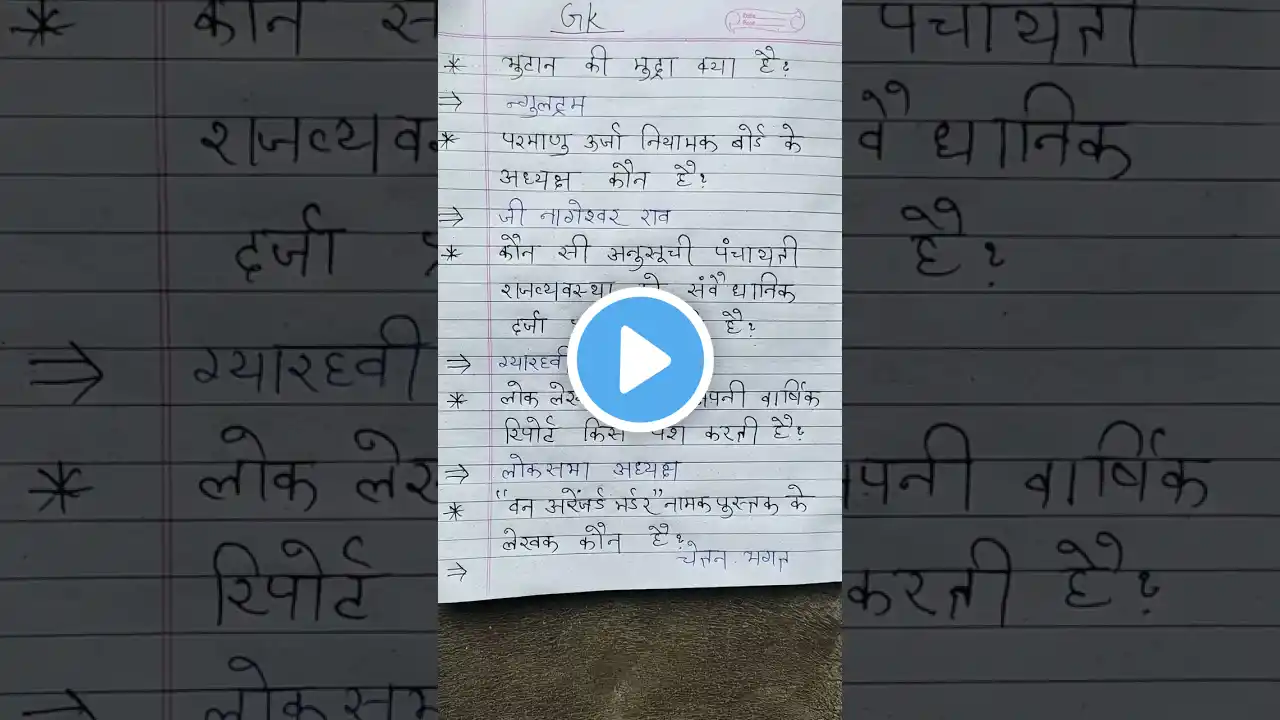 GK
* भुटान की मुद्रा क्या है?
⇒ न्गुलट्रम
* परमाणु ऊर्जा नियामक बोर्ड के
अध्यक्ष कौन है?
⇒ जी नागेश्वर राव
* कौन सी अनुसूची पंचायती
राजव्यवस्था संवैधानिक
दर्जा है?
⇒ ग्यारहवी
* लोक वार्षिक
रिपोर्ट किसे पेश करती है?
⇒ लोकसभा अध्यक्ष
* "वन अरेंजर्ड मर्डर" नामक पुस्तक के
लेखक कौन है?
⇒ चेतन भगत